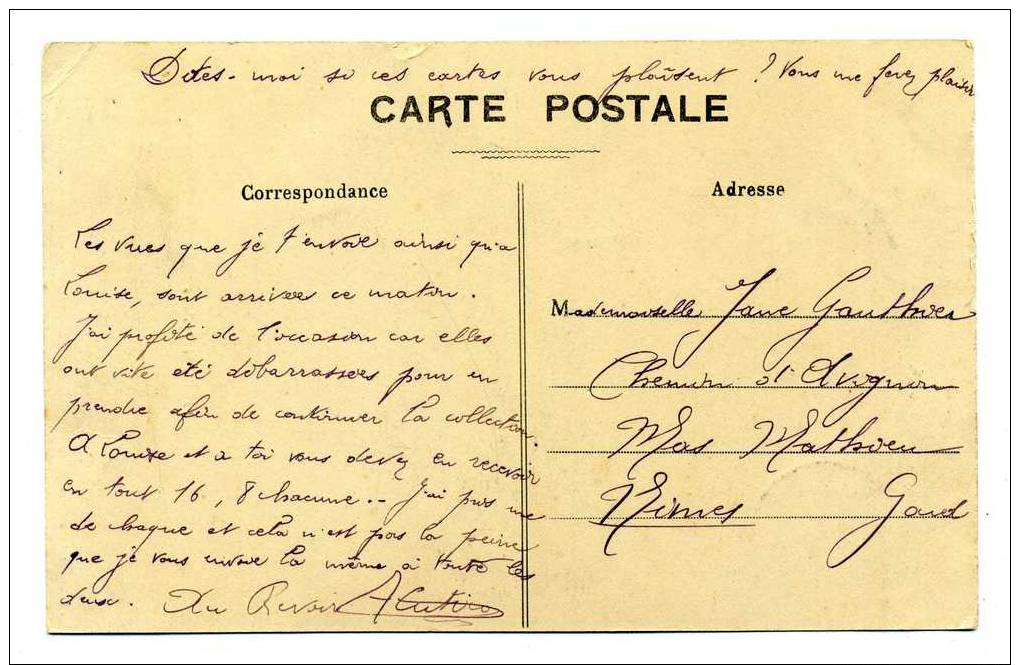 Dites-moi si ces cartes vous plaisent ? Vous me ferez plaisir
CARTE POSTALE
Correspondance
Adresse
Les vues que je t'envoie ainsi qu'a
Louise, sont arrivee ce matin.
J'ai profité de l'occasion car elles
ont vite eté débarrassees pour en
prendre afin de continuer la collection.
A Louise et a toi vous devez en recevoir
en tout 16, 8 chacune. - J'ai pris une
de chaque et cela n'est pas la peine
que je vous envoie la même à toute les
deux. Au Revoir
Mademoiselle Jane Gauthier
Chemin d'Avignon
Mas Mathieu
Nimes Gard